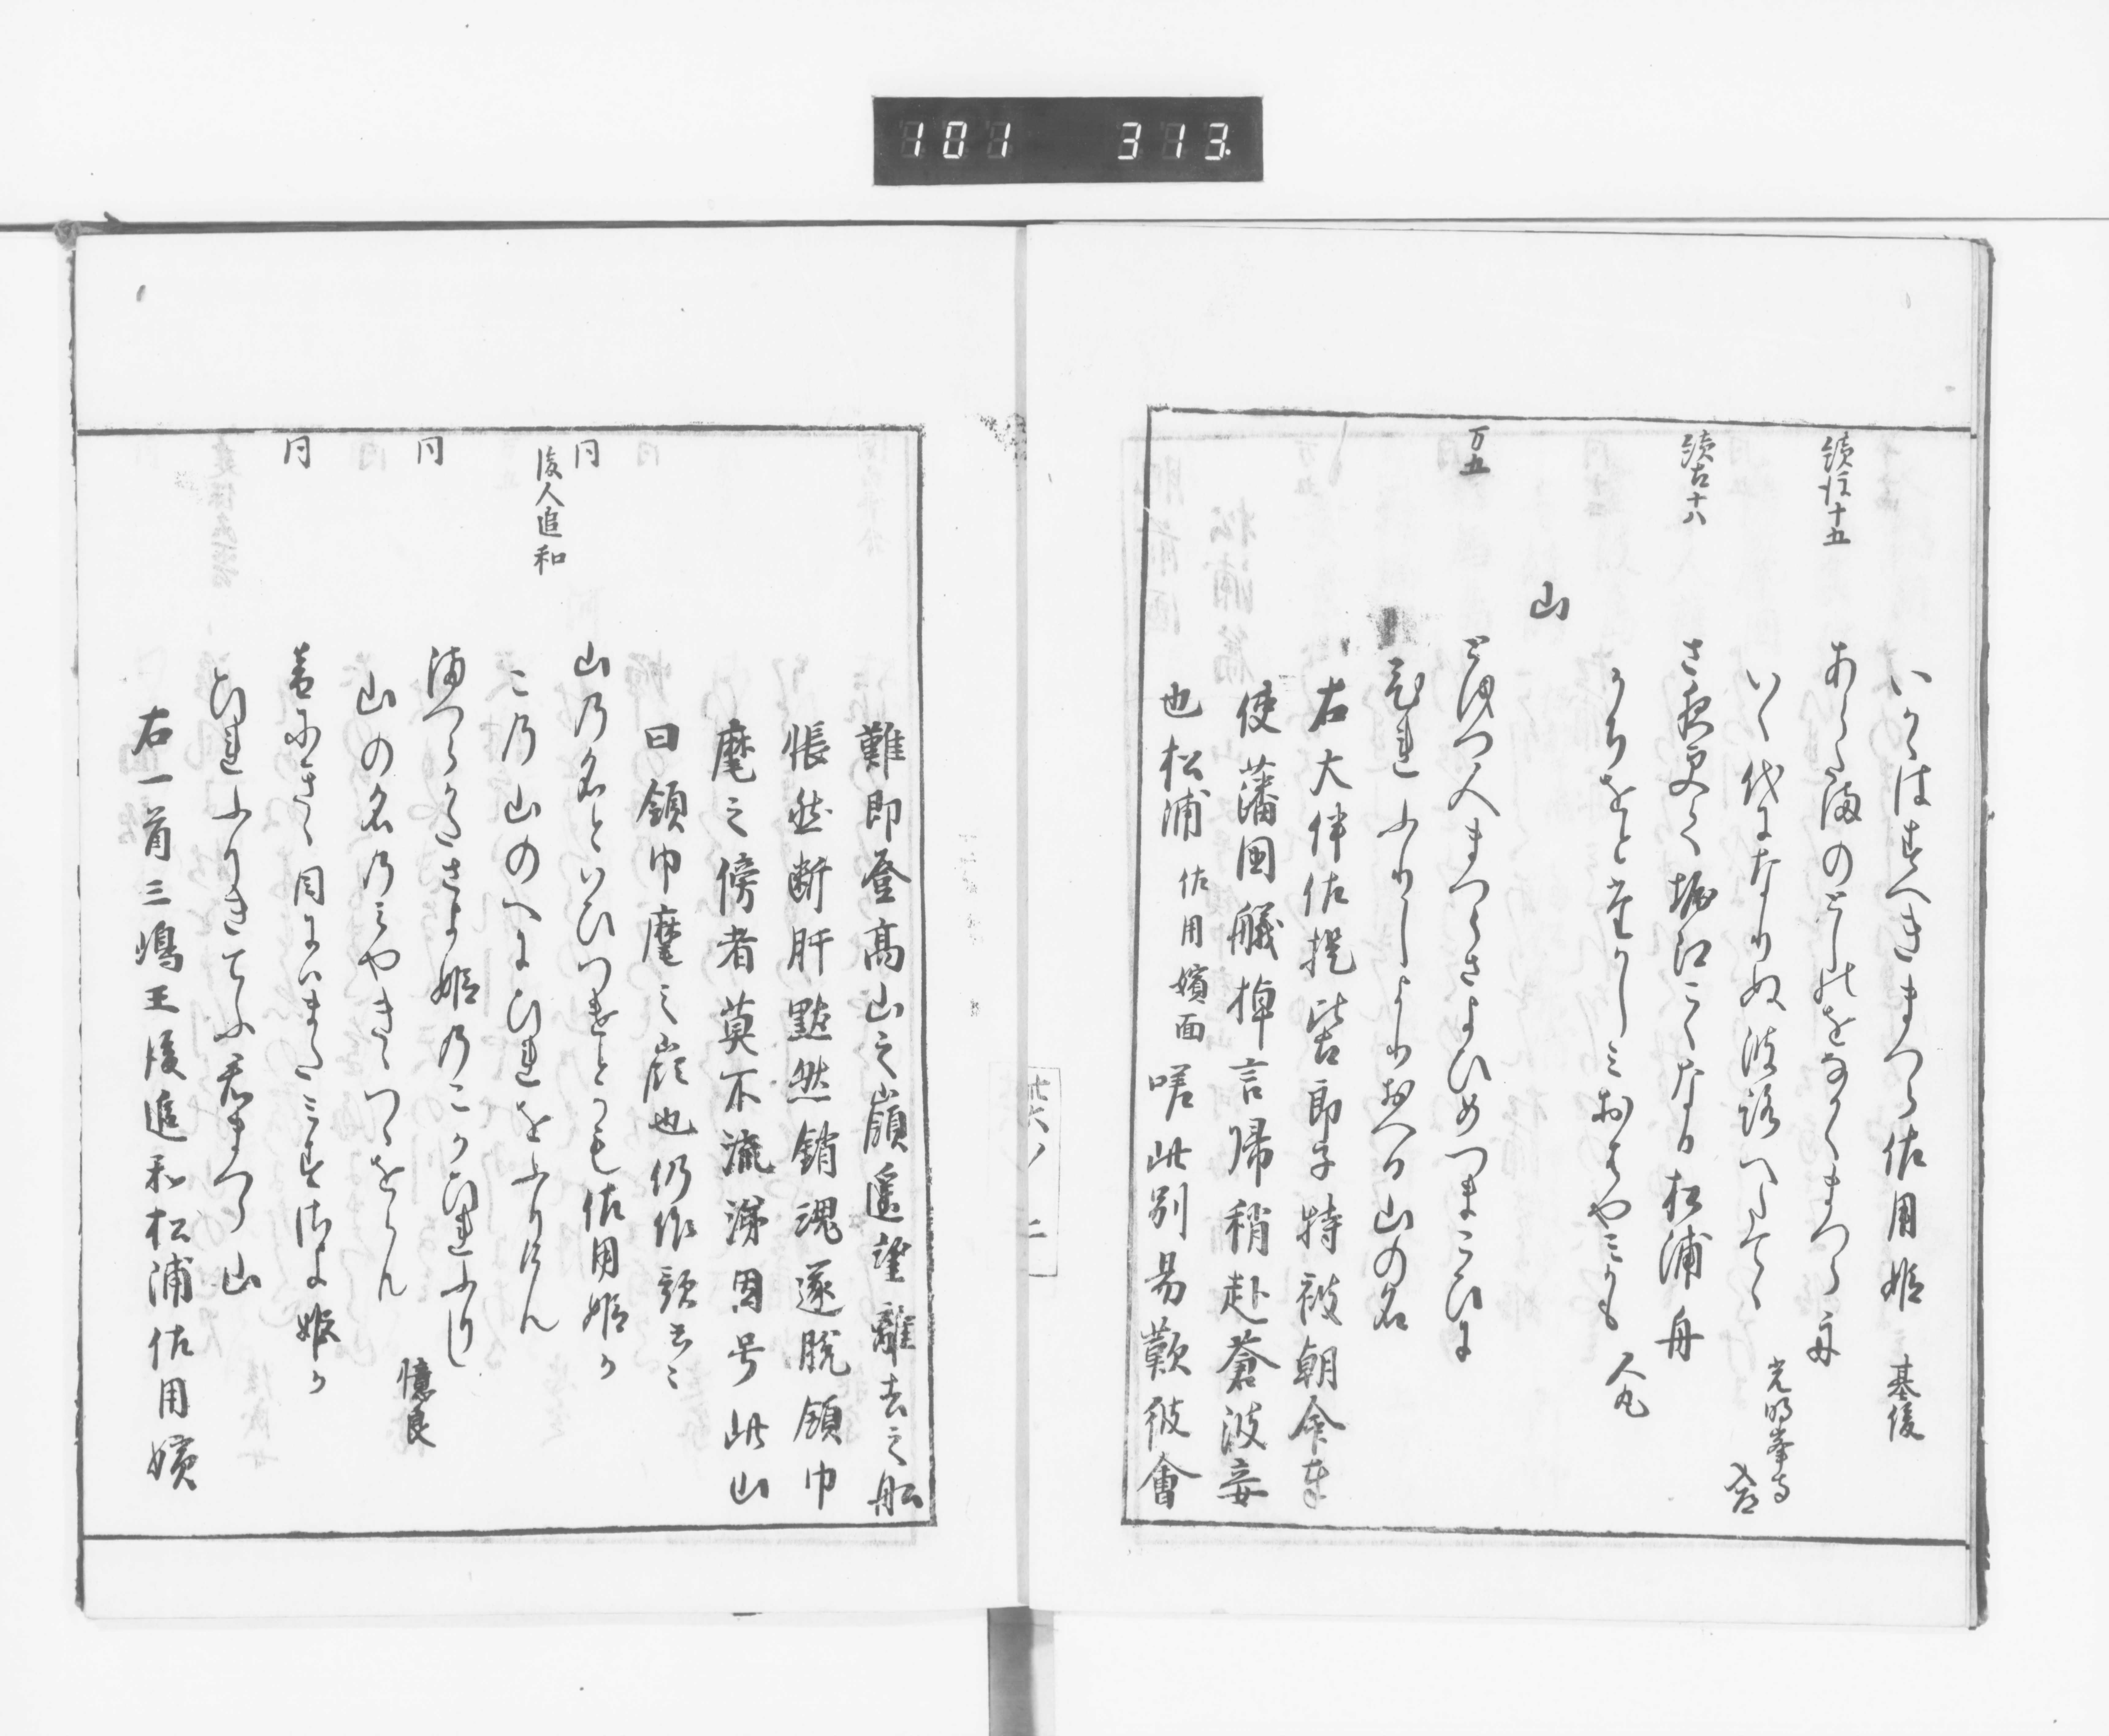 101 313
いかはすへきまつら佐用姫 基俊
續後十五
あらたまのとしのをなかくまつら舟
いく代になりぬ波路へたてゝ 光明峯寺入道
續古十八
さ夜更て堀江こくなる松浦舟
かちをと高しみおはやみかも 人丸
山
万五
とほつ人まつらさよひめつまこひに
ひれふりしよりおへる山の名
右大伴佐提比古郎子特被朝命奉
使藩国艤棹言帰稍赴蒼波妾
也松浦 佐用嬪面 嗟此別易歎彼會
難即登高山之嶺遥望離去之舩
悵然断肝黯然銷魂遂脱領巾
麾之傍者莫不流涕因号此山
曰領巾麾之嶺也仍作歌云々
同
山乃名といひつけとかも佐用姫か
後人追和
こ乃山のへにひれをふりけん
同
海つらかたさよ姫乃こかひれふりし
山の名乃みやきゝつゝをらん 憶良
同
音にきゝ目にはまたみすさよ姫か
ひれふりきてふ君まつら山
右一首三嶋王後追和松浦佐用嬪
廿六ノ 二